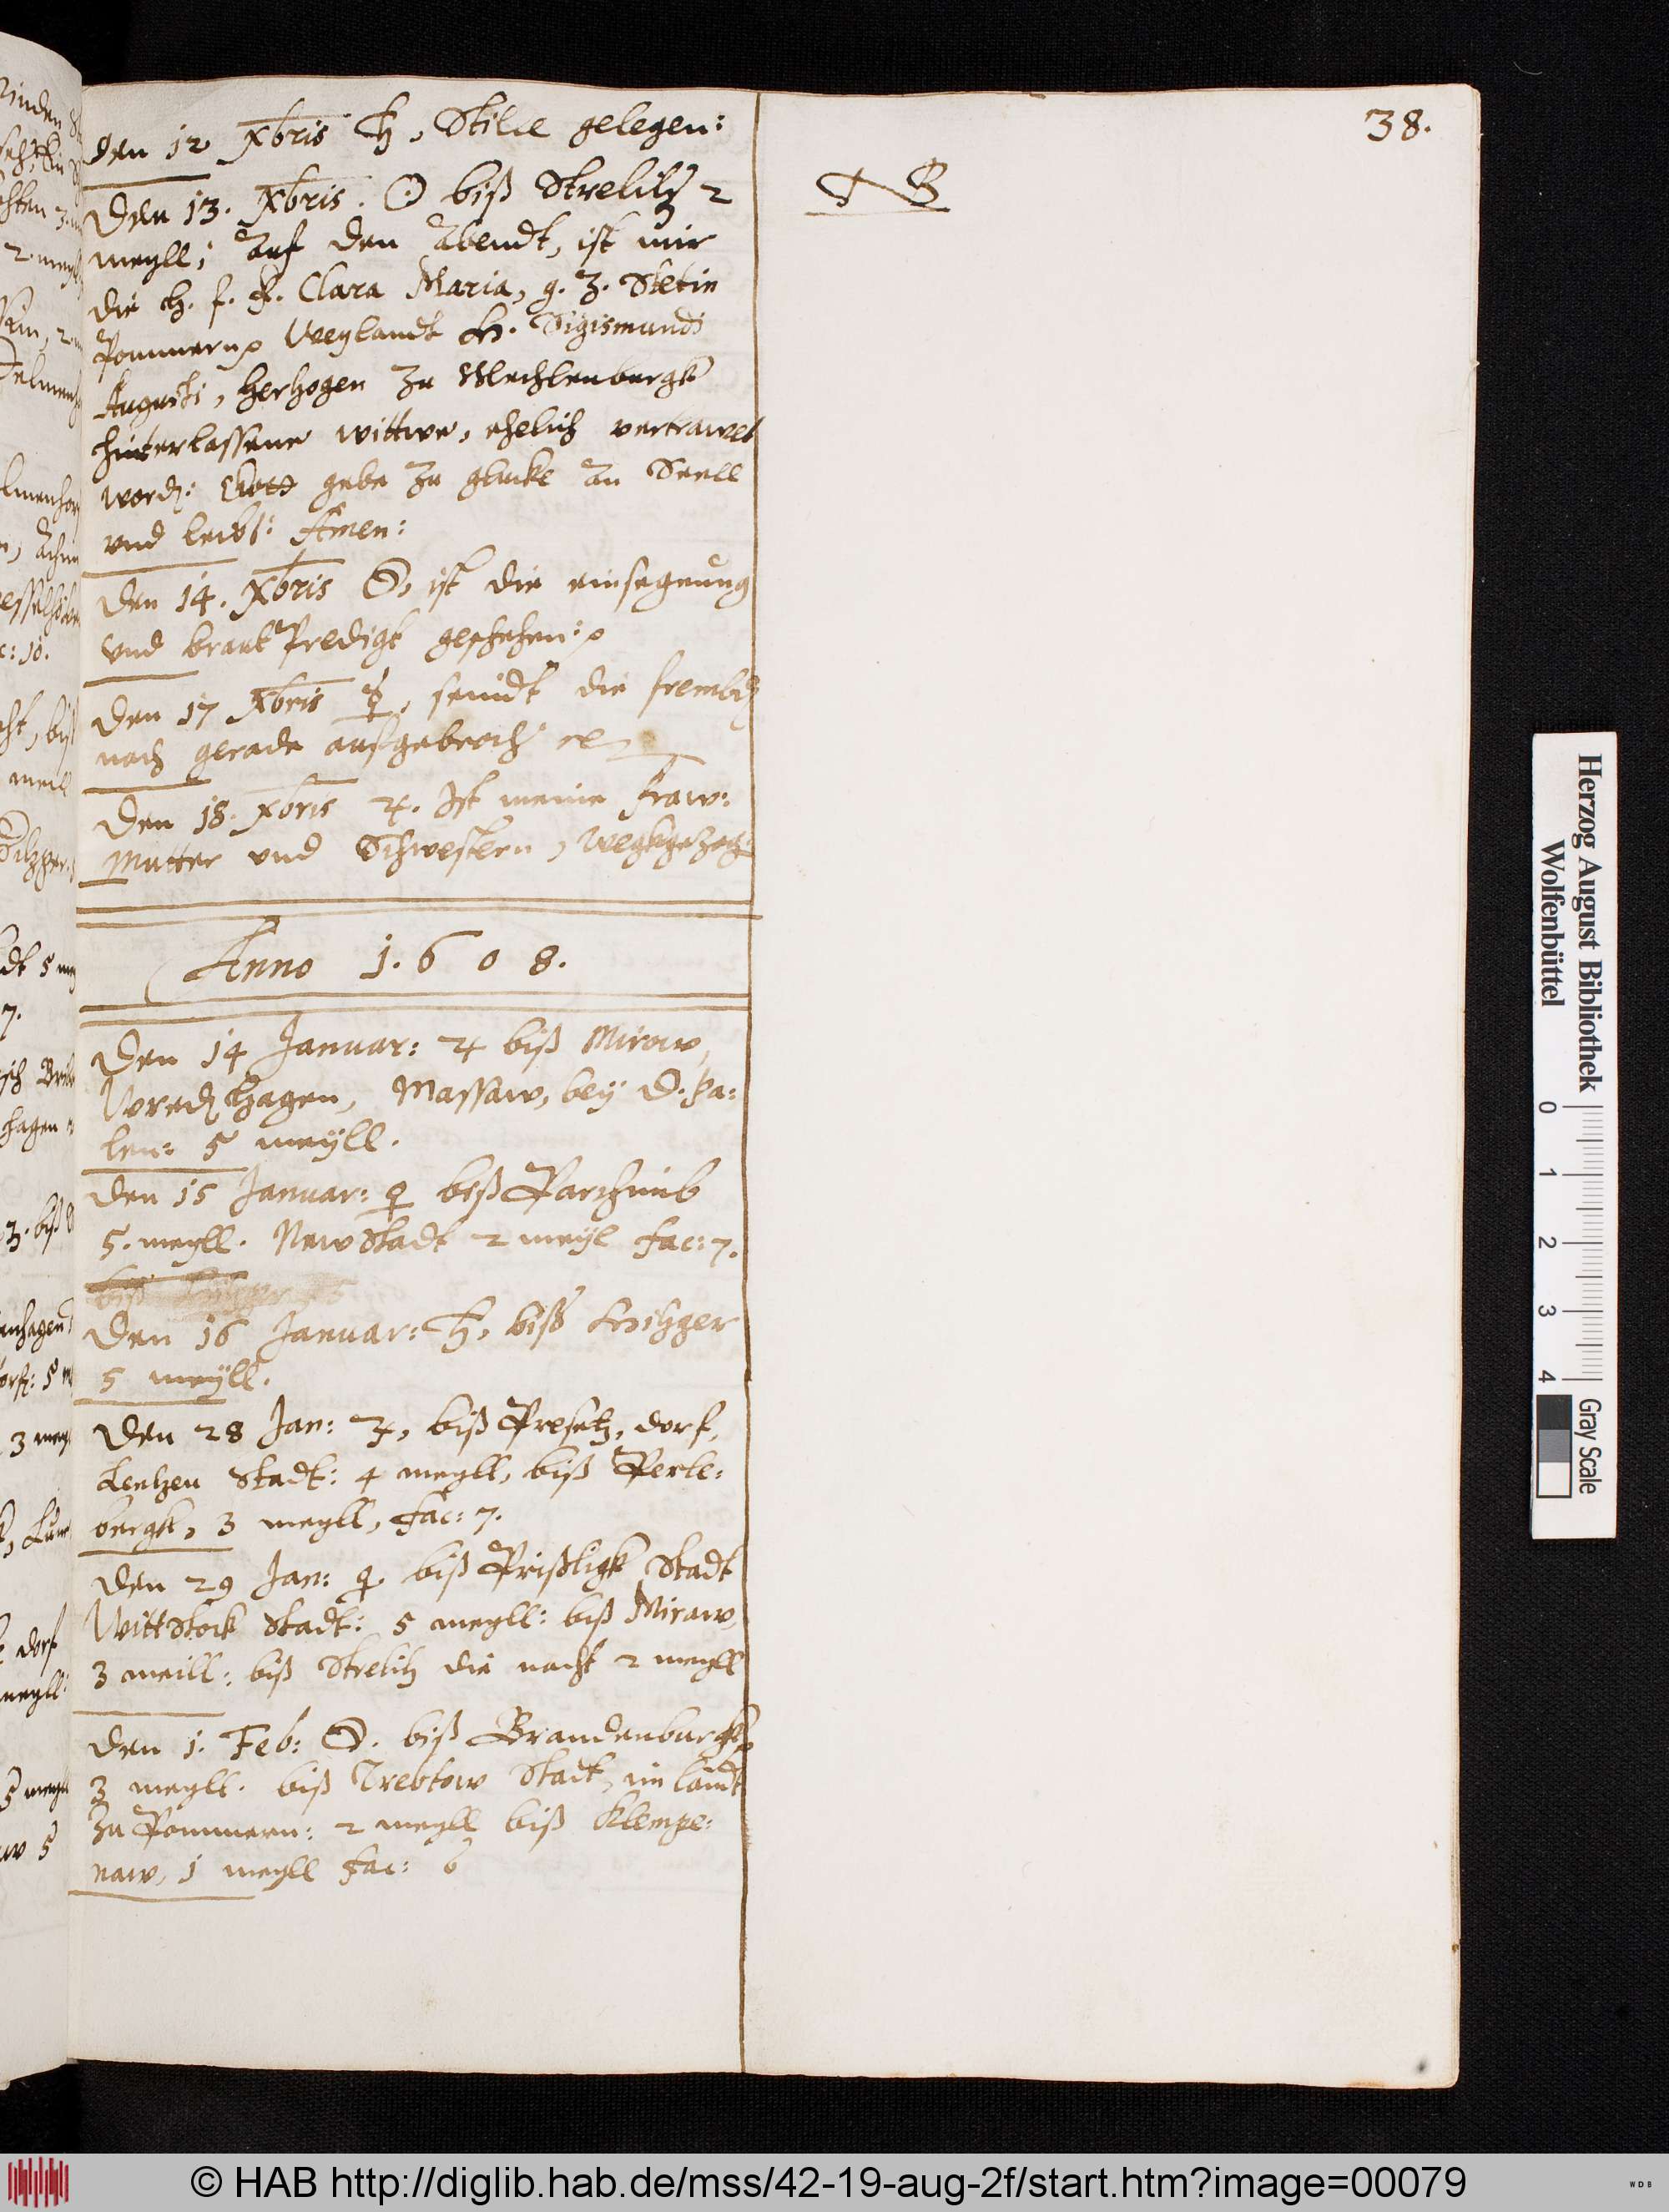 38.
den 12 Xbris ♄, Stille gelegen:
NB
Den 13. Xbris. ☉ biß Strelitz 2
meyll; Auf den Abendt, ist mir
die h. f. f. Clara Maria, g. z. Stetin
Pommern, Weylandt H. Sigismundi
Augusti, Hertzogen zu Mechlenburgk
hinterlassene wittwe, ehelich vertrawet
word: Gott gebe zu glucke an Seell
vnd leibl: Amen:
Den 14. Xbris ☽, ist die einsegnung
vnd braut Predigt geschehen:
Den 17 Xbris ☿, seindt die frembd
nach gerade aufgebroch
Den 18. Xbris ♃. Ist meine fraw:
Mutter vnd Schwestern, wegkgezog:
Anno 1.6 0 8.
Den 14 Januar: ♃ biß Mirow,
Wred Hagen, Massaw, bey D. Ha:
len: 5 meyll.
den 15 Januar: ♀ biß Parchimb
5. meyll. NewStadt 2 meyl fac: 7.
Den 16 Januar: ♄, biß Hitzger
5 meyll.
Den 28 Jan: ♃, biß Presetz, dorf,
Lentzen Stadt: 4 meyll, biß Perle:
bergk, 3 meyll, fac: 7.
den 29 Jan: ♀. biß Prißligk Stadt
WittStock Stadt: 5 meyll: biß Miraw,
3 meill: biß Strelitz die nacht 2 meyll
den 1. Feb: ☽. biß Brandenburgk
3 meyll. biß Trebtow Stadt, im landt
zu Pommern: 2 meyll biß Klempe:
naw, 1 meyll fac: 6
Herzog August Bibliothek
Wolfenbüttel
0 1 2 3 4
Gray Scale
© HAB http://diglib.hab.de/mss/42-19-aug-2f/start.htm?image=00079
WDB